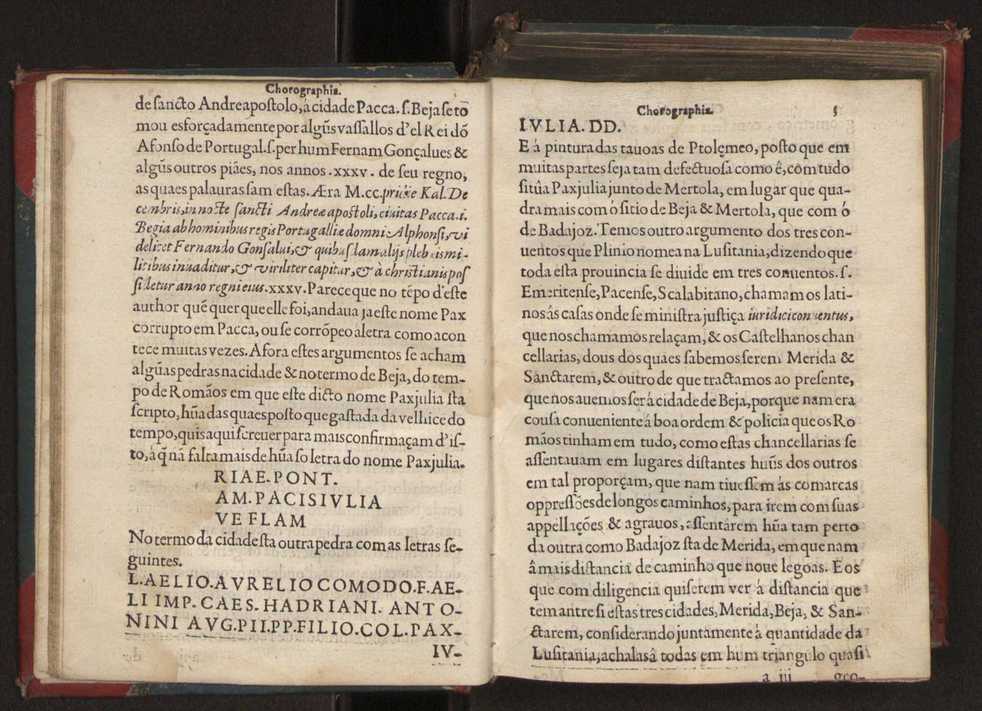 Chorographia.
de sancto Andre apostolo, à cidade Pacca. s. Beja se tō
mou esforçadamente por algũs vassallos d'el Rei dō
Afonso de Portugal. s. per hum Fernam Gonçalues &
algũs outros piães, nos annos .xxxv. de seu regno,
as quaes palauras sam estas. Æra M.cc. pridie Kal. De
cembris, in nocte sancti Andreæ apostoli, ciuitas Pacca. i.
Begia ab hominibus regis Portugalliæ domni Alphonsi, vi
delicet Fernando Gonsalui, & quibusdam alijs plebeis mi-
litibus inuaditur, & viriliter capitur, & à christianis pos
sidetur anno regni eius .xxxv. Parece que no tẽpo d'este
author quẽ quer que elle foi, andaua ja este nome Pax
corrupto em Pacca, ou se corrõpeo a letra como acon
tece muitas vezes. Afora estes argumentos se acham
algũas pedras na cidade & no termo de Beja, do tem-
po de Romãos em que este dicto nome Paxjulia sta
scripto, hũa das quaes posto que gastada da velhice do
tempo, quis aqui screuer para mais confirmaçam d'is-
to, à q̃ nã falta mais de hũa so letra do nome Paxjulia.
RIAE. PONT.
AM. PACIS IVLIA
VE FLAM
No termo da cidade sta outra pedra com as letras se-
guintes.
L. AELIO. AVRELIO COMODO. F. AE-
LI IMP. CAES. HADRIANI. ANTO-
NINI AVG. PII. PP. FILIO. COL. PAX-
IV-
Chorographia. 5
IVLIA. DD.
E à pintura das tauoas de Ptolemeo, posto que em
muitas partes seja tam defectuosa como ê, com tudo
sitûa Paxjulia junto de Mertola, em lugar que qua-
dra mais com ó sitio de Beja & Mertola, que com ó
de Badajoz. Temos outro argumento dos tres con-
uentos que Plinio nomea na Lusitania, dizendo que
toda esta prouincia se diuide em tres conuentos. s.
Emeritense, Pacense, Scalabitano, chamam os lati-
nos âs casas onde se ministra justiça iuridici conuentus,
que nos chamamos relaçam, & os Castelhanos chan
cellarias, dous dos quaes sabemos serem Merida &
Sanctarem, & outro de que tractamos ao presente,
que nos auemos ser à cidade de Beja, porque nam era
cousa conueniente à boa ordem & policia que os Ro
mãos tinham em tudo, como estas chancellarias se
assentauam em lugares distantes huũs dos outros
em tal proporçam, que nam tiuessem âs comarcas
oppressões de longos caminhos, para irem com suas
appellações & agrauos, essentarem hũa tam perto
da outra como Badajoz sta de Merida, em que nam
â mais distancia de caminho que noue legoas. E os
que com diligencia quiserem ver à distancia que
tem antre si estas tres cidades, Merida, Beja, & San-
ctarem, considerando juntamente à quantidade da
Lusitania, achalasã todas em hum triangulo quasi
a iij geo-